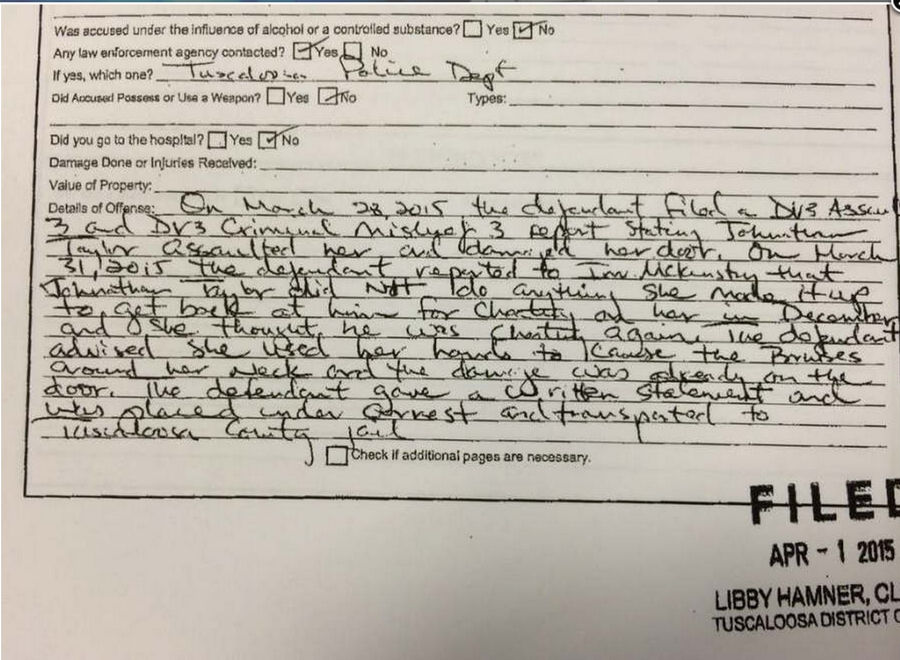 Was accused under the influence of alcohol or a controlled substance? Yes No
Any law enforcement agency contacted? Yes No
If yes, which one? Tuscaloosa Police Dept
Did Accused Possess or Use a Weapon? Yes No Types:
Did you go to the hospital? Yes No
Damage Done or Injuries Received:
Value of Property:
Details of Offense: On March 28, 2015 the defendant filed a DV3 Assau
3 and DV3 Criminal Mischief 3 report stating Johnathan
Taylor assaulted her and damaged her door. On March
31, 2015 the defendant reported to Inv. McKinstry that
Johnathan Taylor did Not do anything she made it up
to get back at him for cheating on her in December
and she thought he was cheating again. The defendant
advised she used her hands to cause the Bruises
around her neck and the damage was already on the
door. The defendant gave a written statement and
was placed under arrest and transported to
Tuscaloosa County jail
Check if additional pages are necessary.
FILED
APR - 1 2015
LIBBY HAMNER, CL
TUSCALOOSA DISTRICT C